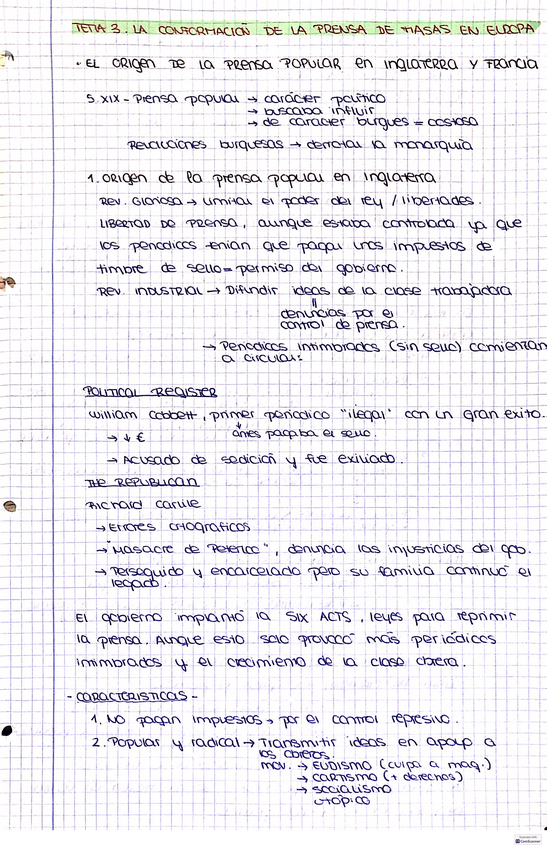 TEMA 3. LA CONFORMACIÓN DE LA PRENSA DE MASAS EN EUROPA
· EL ORIGEN DE LA PRENSA POPULAR en INGLATERRA Y FRANCIA
S. XIX - Prensa popular → carácter político
→ buscaba influir
→ de carácter burgues = costosa
Revoluciones burguesas → derrotar la monarquía
1. ORIGEN de la prensa popular en Inglaterra
REV. GLORIOSA → limitar el poder del rey / libertades.
LIBERTAD DE PRENSA, aunque estaba controlada ya que
los periodicos tenian que pagar unos impuestos de
timbre de sello = permiso del gobierno.
REV. INDUSTRIAL → Difundir ideas de la clase trabajadora
denuncias por el
control de prensa.
→ Periodicos intimbrados (sin sello) comienzan
a circular:
POLITICAL REGISTER
William Cobbett, primer periodico "ilegal" con un gran exito.
→ ↓ € antes pagaba el sello.
→ Acusado de sedición y fue exiliado.
THE REPUBLICAN
Richard Carlile
→ Errores ortograficos
→ "Masacre de Peterloo", denuncia las injusticias del gob.
→ Perseguido y encarcelado pero su familia continuó el
legado.
El gobierno implantó la SIX ACTS, leyes para reprimir
la prensa. Aunque esto solo provocó más periódicos
intimbrados y el crecimiento de la clase obrera.
- CARACTERISTICAS -
1. No pagan impuestos → por el control represivo.
2. Popular y radical → Transmitir ideas en apoyo a
los obreros.
mov. → LUDISMO (culpa a maq.)
→ CARTISMO (+ derechos)
→ SOCIALISMO
UTÓPICO
CamScanner